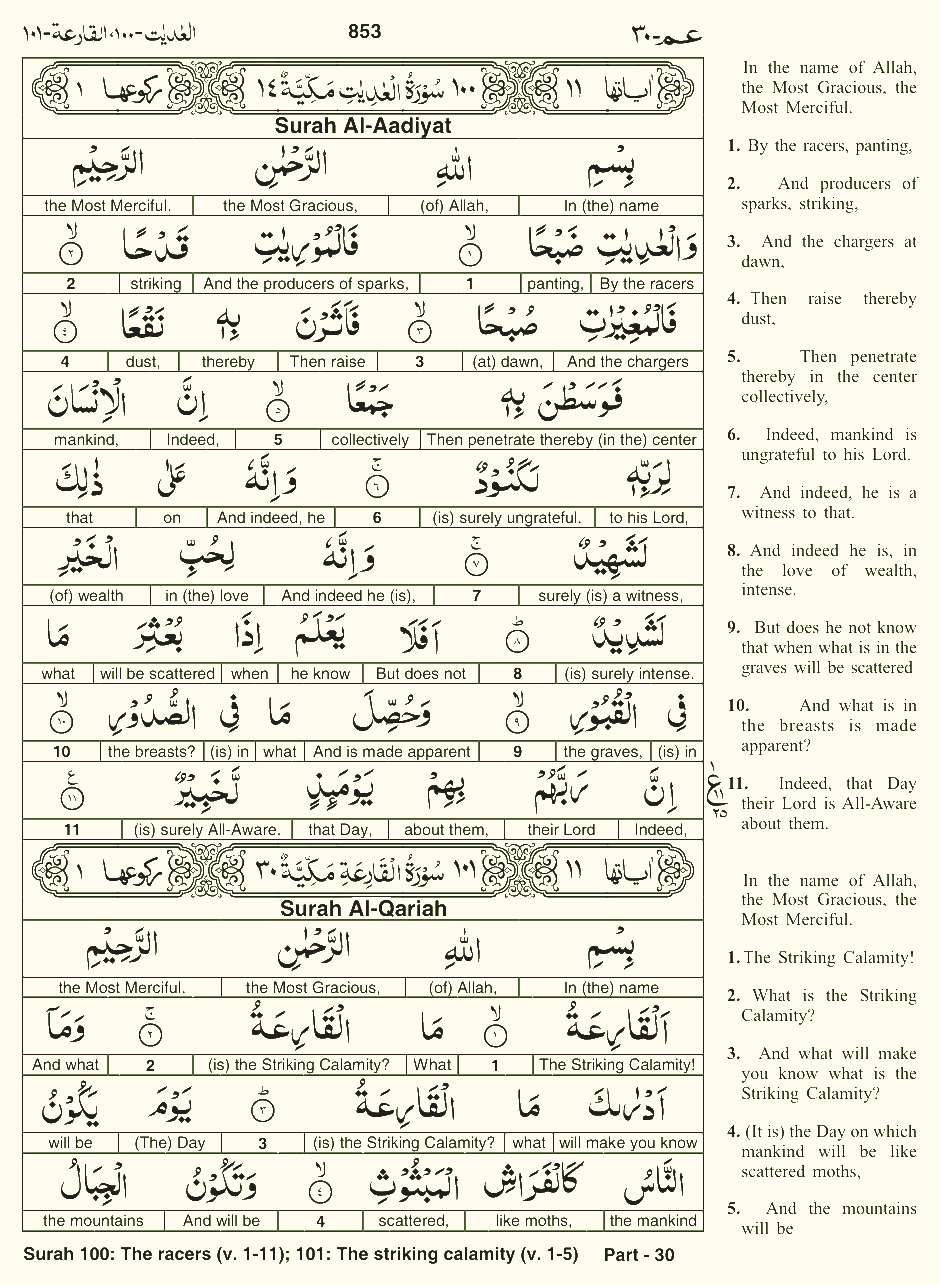 العٰديٰت-۱۰۰، القارعة-۱۰۱ 853 عمّ-۳۰
اٰیاتها ۱۱ ۱۰۰ سُوْرَةُ الْعٰدِيٰتِ مَكِّيَّةٌ ۱٤ ركوعها ۱
Surah Al-Aadiyat
بِسْمِ اللهِ الرَّحْمٰنِ الرَّحِيْمِ
the Most Merciful. the Most Gracious, (of) Allah, In (the) name
وَالْعٰدِيٰتِ ضَبْحًا ۙ﴿۱﴾ فَالْمُوْرِيٰتِ قَدْحًا ۙ﴿۲﴾
2 striking And the producers of sparks, 1 panting, By the racers
فَالْمُغِيْرٰتِ صُبْحًا ۙ﴿۳﴾ فَاَثَرْنَ بِهٖ نَقْعًا ۙ﴿٤﴾
4 dust, thereby Then raise 3 (at) dawn, And the chargers
فَوَسَطْنَ بِهٖ جَمْعًا ۙ﴿۵﴾ اِنَّ الْاِنْسَانَ
mankind, Indeed, 5 collectively Then penetrate thereby (in the) center
لِرَبِّهٖ لَكَنُوْدٌ ۚ﴿۶﴾ وَاِنَّهٗ عَلٰى ذٰلِكَ
that on And indeed, he 6 (is) surely ungrateful. to his Lord,
لَشَهِيْدٌ ۚ﴿۷﴾ وَاِنَّهٗ لِحُبِّ الْخَيْرِ
(of) wealth in (the) love And indeed he (is), 7 surely (is) a witness,
لَشَدِيْدٌ ؕ﴿۸﴾ اَفَلَا يَعْلَمُ اِذَا بُعْثِرَ مَا
what will be scattered when he know But does not 8 (is) surely intense.
فِى الْقُبُوْرِ ۙ﴿۹﴾ وَحُصِّلَ مَا فِى الصُّدُوْرِ ۙ﴿۱۰﴾
10 the breasts? (is) in what And is made apparent 9 the graves, (is) in
اِنَّ رَبَّهُمْ بِهِمْ يَوْمَئِذٍ لَّخَبِيْرٌ ﴿۱۱﴾ ع
۱ ع ۱۱ ۲۵
11 (is) surely All-Aware. that Day, about them, their Lord Indeed,
اٰیاتها ۱۱ ۱۰۱ سُوْرَةُ الْقَارِعَةِ مَكِّيَّةٌ ۳۰ ركوعها ۱
Surah Al-Qariah
بِسْمِ اللهِ الرَّحْمٰنِ الرَّحِيْمِ
the Most Merciful. the Most Gracious, (of) Allah, In (the) name
اَلْقَارِعَةُ ۙ﴿۱﴾ مَا الْقَارِعَةُ ۚ﴿۲﴾ وَمَآ
And what 2 (is) the Striking Calamity? What 1 The Striking Calamity!
اَدْرٰىكَ مَا الْقَارِعَةُ ؕ﴿۳﴾ يَوْمَ يَكُوْنُ
will be (The) Day 3 (is) the Striking Calamity? what will make you know
النَّاسُ كَالْفَرَاشِ الْمَبْثُوْثِ ۙ﴿٤﴾ وَتَكُوْنُ الْجِبَالُ
the mountains And will be 4 scattered, like moths, the mankind
In the name of Allah,
the Most Gracious, the
Most Merciful.
1. By the racers, panting,
2. And producers of
sparks, striking,
3. And the chargers at
dawn,
4. Then raise thereby
dust,
5. Then penetrate
thereby in the center
collectively,
6. Indeed, mankind is
ungrateful to his Lord.
7. And indeed, he is a
witness to that.
8. And indeed he is, in
the love of wealth,
intense.
9. But does he not know
that when what is in the
graves will be scattered
10. And what is in
the breasts is made
apparent?
11. Indeed, that Day
their Lord is All-Aware
about them.
In the name of Allah,
the Most Gracious, the
Most Merciful.
1. The Striking Calamity!
2. What is the Striking
Calamity?
3. And what will make
you know what is the
Striking Calamity?
4. (It is) the Day on which
mankind will be like
scattered moths,
5. And the mountains
will be
Surah 100: The racers (v. 1-11); 101: The striking calamity (v. 1-5) Part - 30